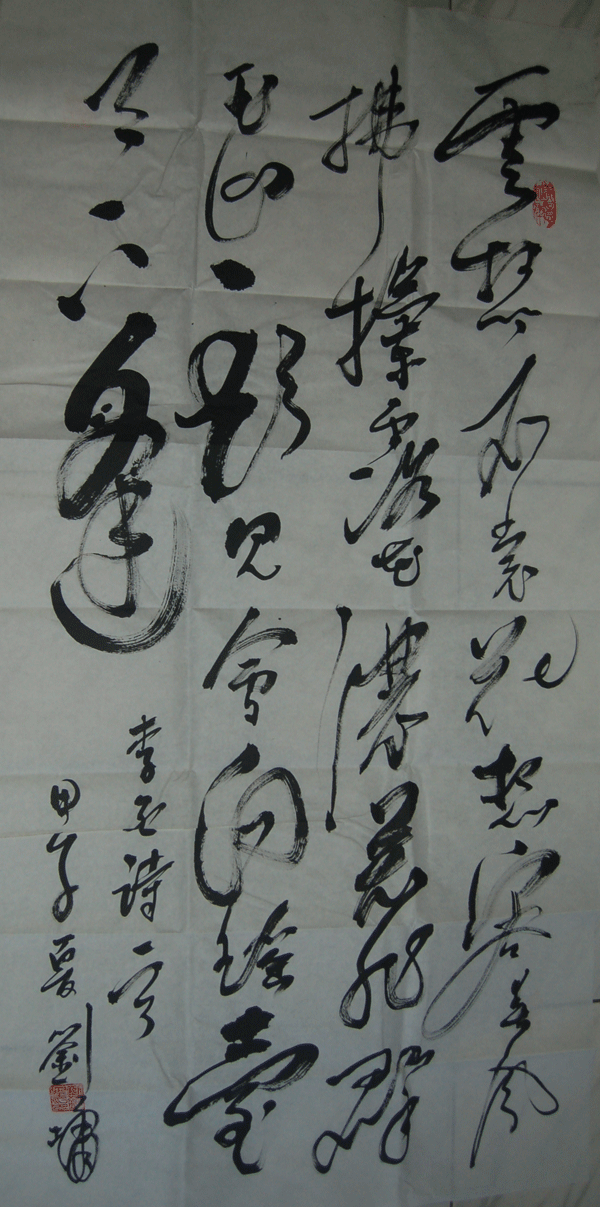 雲想衣裳花想容春風
拂檻露華濃若非群
玉山頭見會向瑤臺
月下逢
李白詩一首
甲午夏劉墉